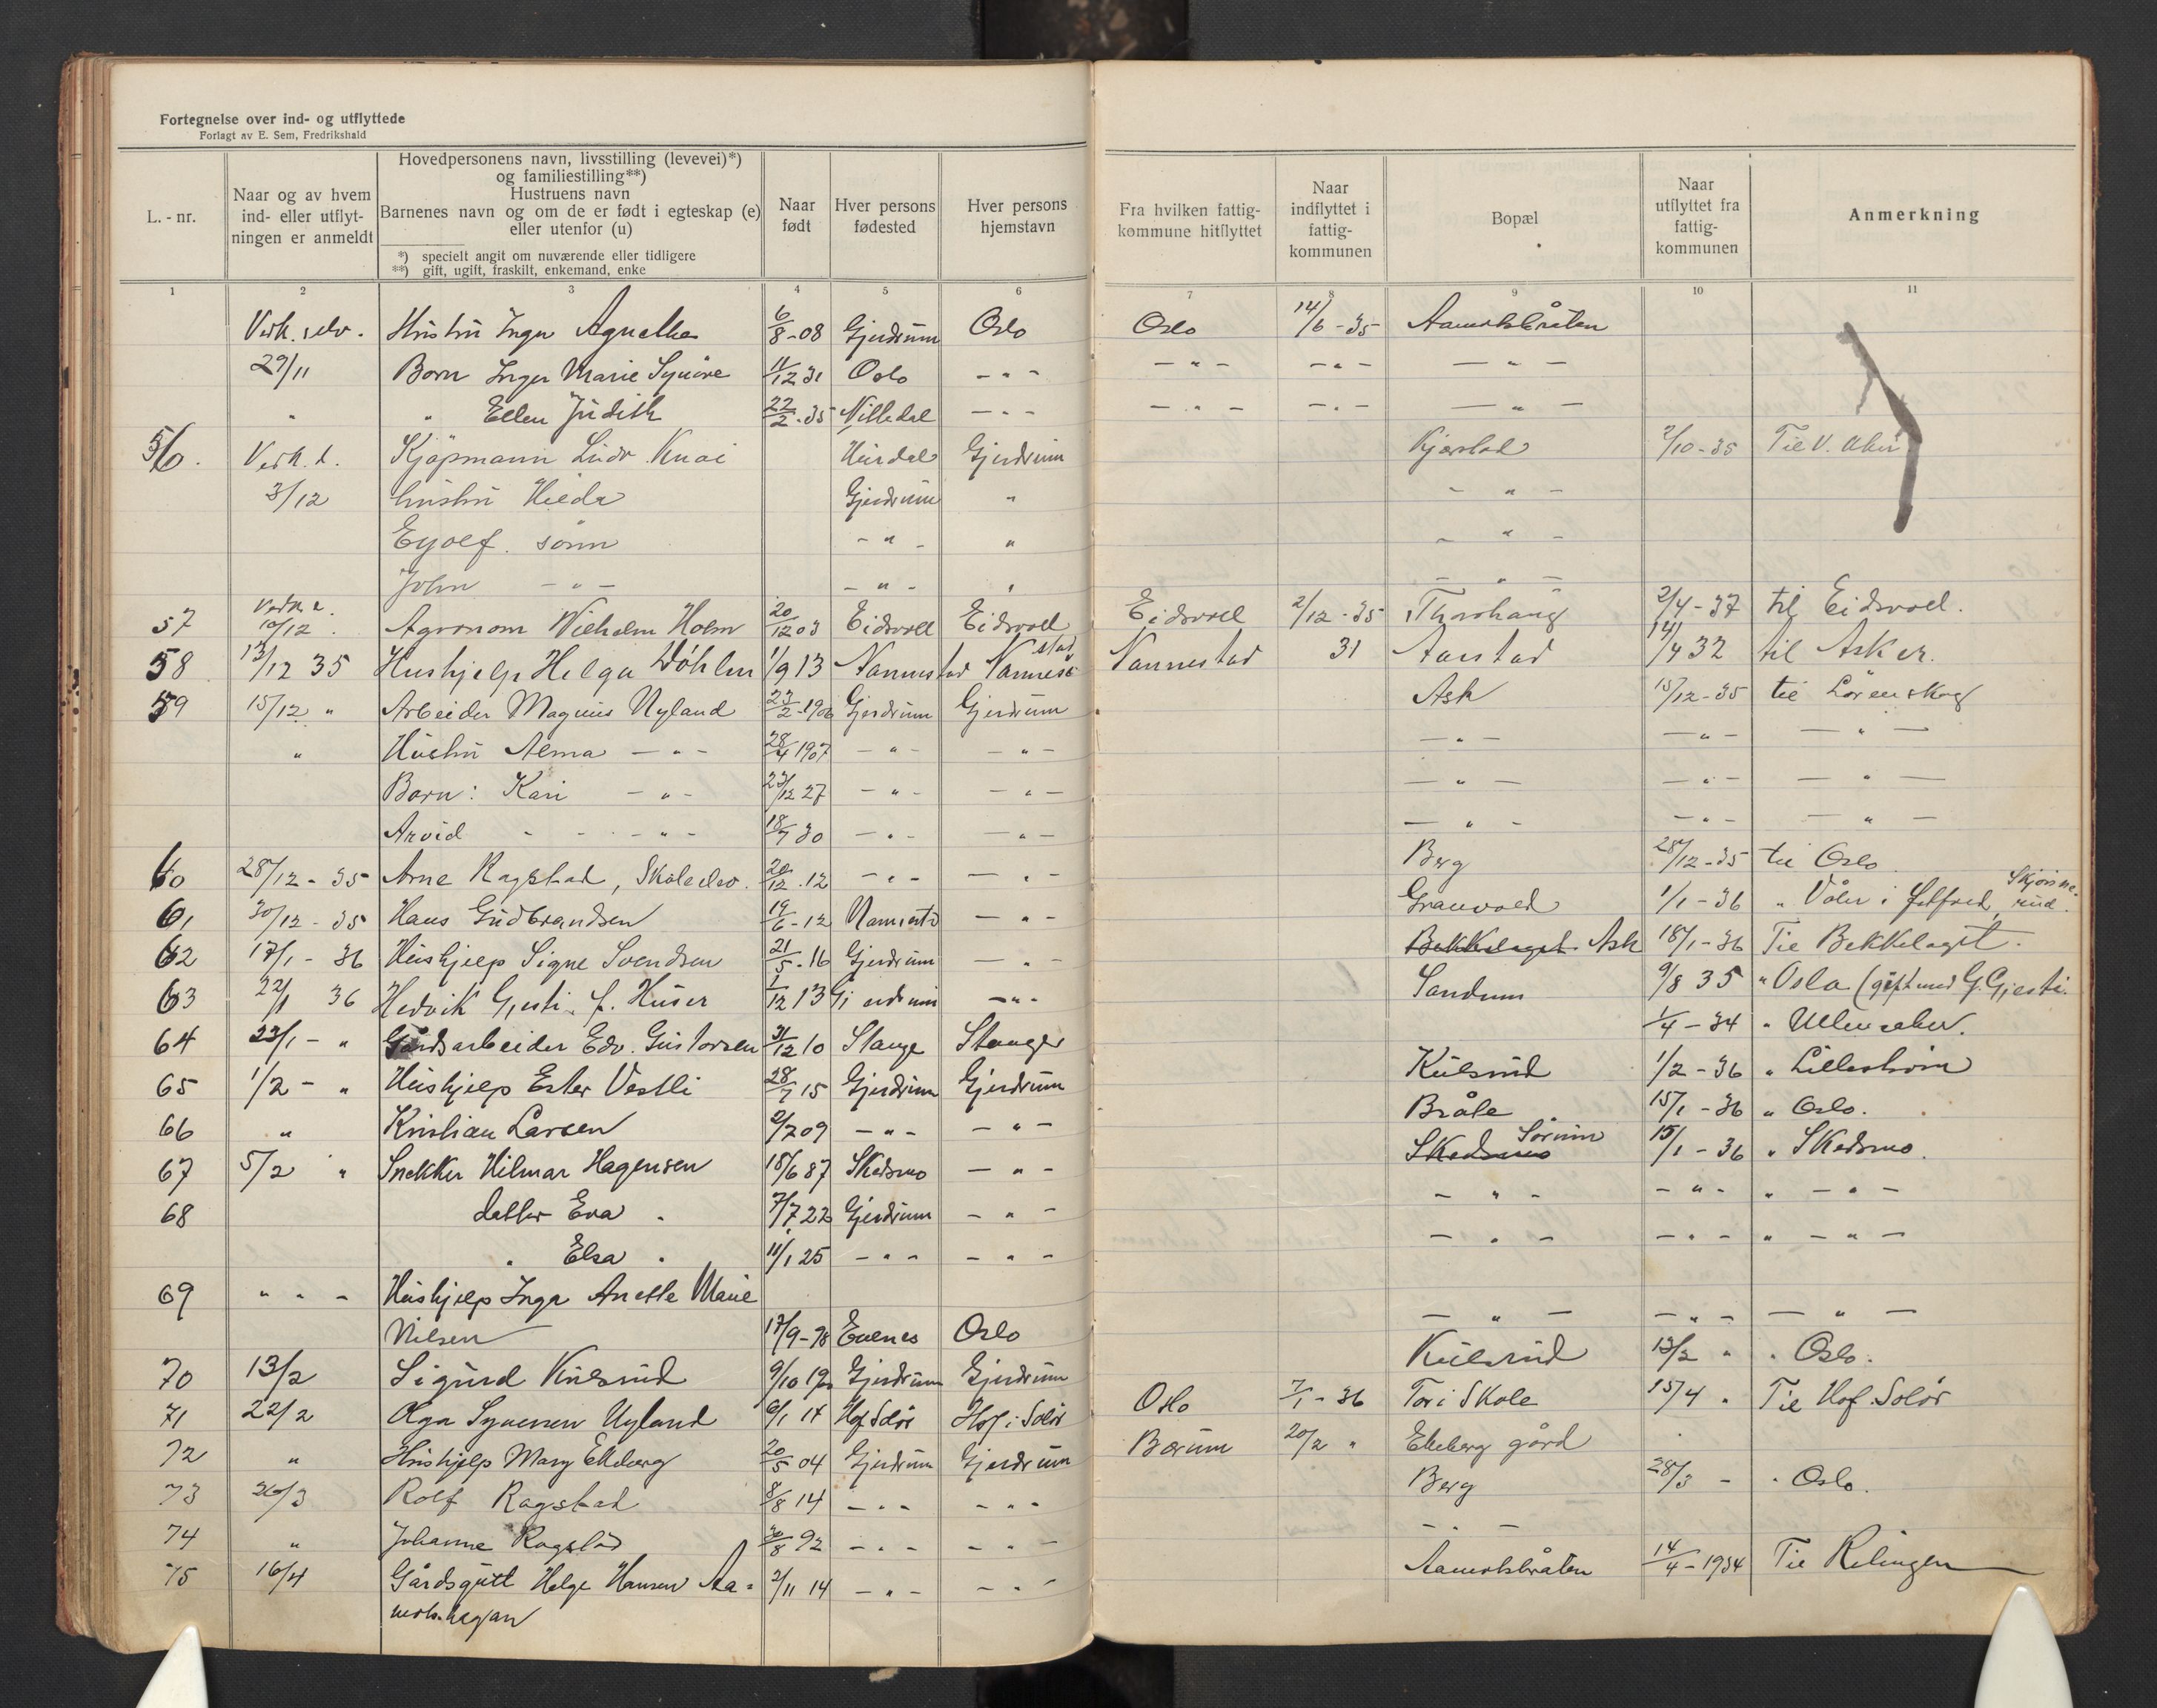 Fortegnelse over ind- og utflyttede
Forlagt av E. Sem, Fredrikshald
L. - nr.
Naar og av hvem
ind- eller utflyt-
ningen er anmeldt
Hovedpersonens navn, livsstilling (levevei)*)
og familiestilling**)
Hustruens navn
Barnenes navn og om de er født i egteskap (e)
eller utenfor (u)
*) specielt angit om nuværende eller tidligere
**) gift, ugift, fraskilt, enkemand, enke
Naar
født
Hver persons
fødested
Hver persons
hjemstavn
Fra hvilken fattig-
kommune hitflyttet
Naar
indflyttet i
fattig-
kommunen
Bopæl
Naar
utflyttet fra
fattig-
kommunen
Anmerkning
1 2 3 4 5 6 7 8 9 10 11
Vedk. selv. Hustru Inga Agnethe 6/8-08 Gjerdrum Oslo Oslo 14/6-35 Aamotsbråten
29/11 Barn Inger Marie Synöve 11/12 31 Oslo -"- -"- -"- -"-
" " Ellen Judith 22/2-35 Nittedal -"- -"- -"- -"-
56. Vedk. s. Kjöpmann Ludv. Knai Hurdal Gjerdrum Kjærstad 2/10-35 Til V. Aker
3/12 hustru Hilda Gjerdrum " -"-
Eyolf. sönn -"- " -"-
John -"- -"- " -"-
57 Vedk. s. 10/12. Agronom Wilhelm Holm 20/12 03 Eidsvoll Eidsvoll Eidsvoll 2/12-35 Thorhaug 2/4-37 til Eidsvoll.
58 13/12 35 Hushjelp Helga Döhlen 1/9 13 Nannestad Nannestad Nannestad 31 Aarstad 14/4 32 til Asker.
59 15/12 " Arbeider Magnus Nyland 23/2-1906 Gjerdrum Gjerdrum Ask 15/12-35 til Lörenskog
" Hustru Alma -"- 28/4 1907 -"- -"- -"- -"- -"-
Barn: Kari -"- 23/12 27 -"- -"- -"- -"- -"-
Arvid -"- 18/7 30 -"- -"- -"- -"- -"-
60 28/12-35 Arne Ragstad, Skoleelev. 20/12.12 -"- -"- Berg 28/12-35 til Oslo
61 30/12-35 Hans Gudbrandsen 19/6-12 Nannestd -"- Granvold 1/1-36 " Våler i Östfold, Skjorsnerud.
62 17/1-36 Hushjelp Signe Svendsen 21/5-16 Gjerdrum -"- Bekkelaget Ask 18/1-36 Til Bekkelaget.
63 22/1 36 Hedvik Gjesti f. Huser 1/12 13 Gjerdrum -"- Sandum 9/8 35 " Oslo (gift med G. Gjesti.
64 23/1-" Gårdsarbeider Edv. Gustavsen 31/12 10 Stange Stange 1/4-34 " Ullensaker.
65 1/2-" Hushjelp Ester Vestli 28/7 15 Gjerdrum Gjerdrum Kulsrud 1/2-36 " Lilleström
66 " Kristian Larsen 2/7 09 -"- -"- Bråte 15/1-36 " Oslo.
67 5/2 " Snekker Hilmar Hagensen 18/6 87 Skedsmo -"- Skedsmo Sörum 15/1-36 " Skedsmo.
68 datter Eva " 7/7 22 Gjerdrum -"- -"- -"- " -"-
" Elsa " 11/1 25 -"- -"- -"- -"- " -"-
69 " " - Hushjelp Inga Anette Marie
Nilsen 17/9-98 Evenes Oslo -"- -"- -"-
70 13/2 Sigurd Kulsrud 9/10 1920 Gjerdrum Gjerdrum Kulsrud 13/2 " " Oslo.
71 22/2 Olga Synnven Nyland 6/1 14 Hof Solör Hof i Solör Oslo 7/1-36 Tori Skole 15/4 " Til Hof. Solör
72 " Hushjelp Mary Ekeberg 20/5 04 Gjerdrum Gjerdrum Bærum 20/2 " Ekeberg gård
73 26/3 Rolf Ragstad 8/8 14 -"- -"- Berg 28/3 - " Oslo.
74 " Johanne Ragstad 30/8 92 -"- -"- -"-
75 16/4 Gårdsgutt Helge Hansen Aa- 2/11 14 -"- -"- Aamotsbråten 14/4-1934 Til Rælingen
motshagan